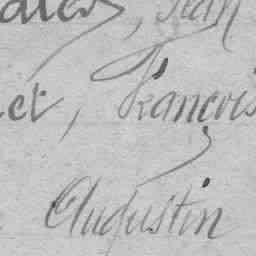 Jean
et, François
Augustin